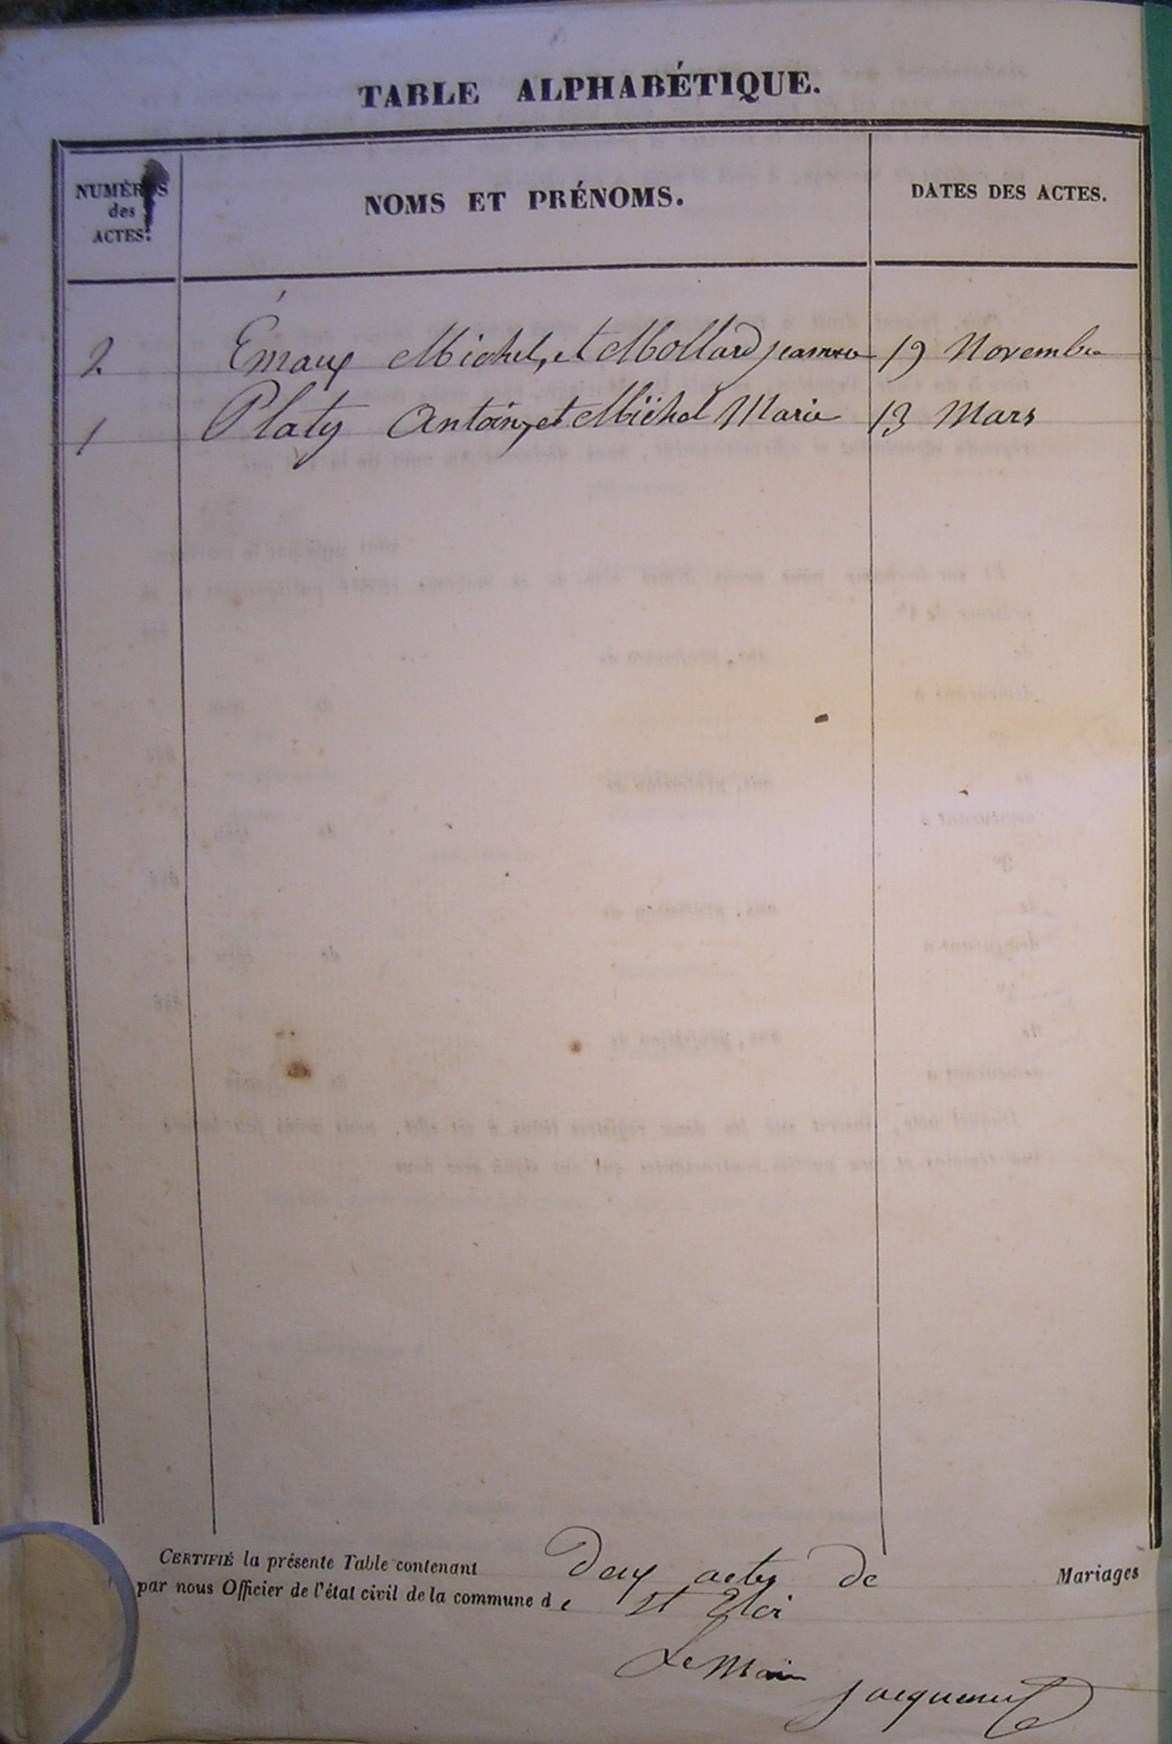 TABLE ALPHABÉTIQUE.
NUMÉROS des ACTES.
NOMS ET PRÉNOMS.
DATES DES ACTES.
2 Émaux Michel, et Mollard jeanne 19 Novembre
1 Platy Antoine, et Michel Marie 13 Mars
CERTIFIÉ la présente Table contenant deux actes de Mariages
par nous Officier de l'état civil de la commune de St Eloi
Le Maire